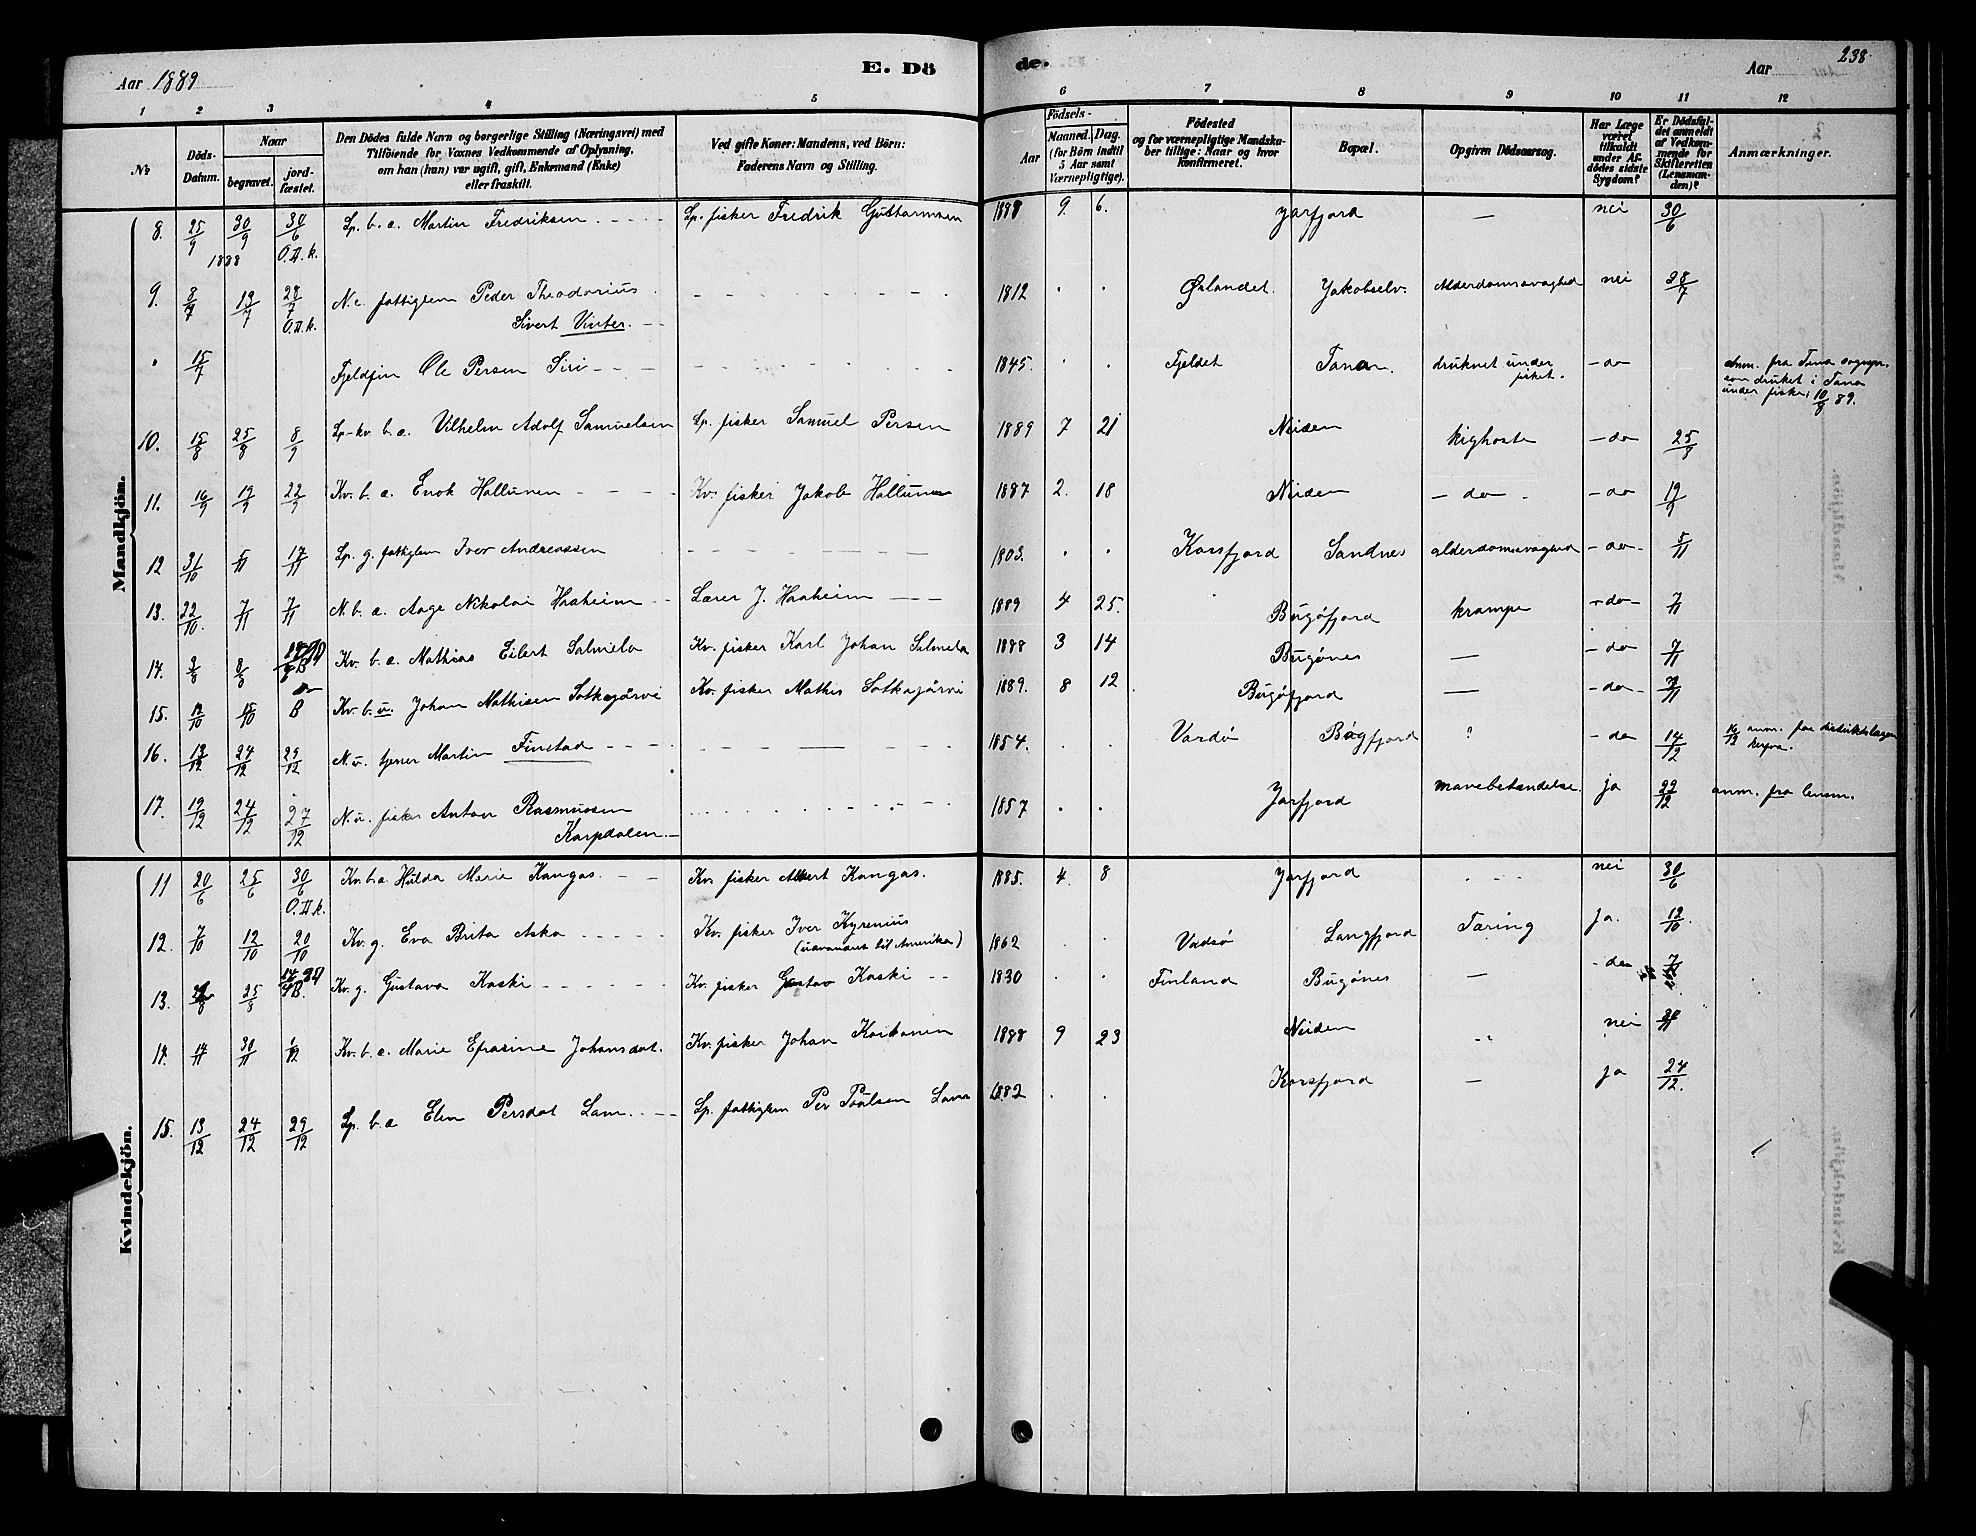 Aar 1889 E. Dö de. Aar 238
1 2 3 4 5 6 7 8 9 10 11 12
№
Döds-Datum.
Naar
begravet. jord-fæstet.
Den Dödes fulde Navn og borgerlige Stilling (Næringsvei) med
Tilföiende for Voxnes Vedkommende af Oplysning,
om han (hun) var ugift, gift, Enkemand (Enke)
eller fraskilt.
Ved gifte Koner: Mandens, ved Börn:
Faderens Navn og Stilling.
Födsels-
Aar Maaned. Dag.
(for Börn indtil
5 Aar samt
Værnepligtige).
Födested
og for værnepligtige Mandska-
ber tillige: Naar og hvor
konfirmeret.
Bopæl.
Opgiven Dödsaarsag.
Har Læge
været
tilkaldt
under Af-
dödes sidste
Sygdom?
Er Dödsfal-
det anmeldt
af Vedkom-
mende for
Skifteretten
(Lensman-
den)?
Anmærkninger.
Mandkjön.
8. 25/9 30/9 30/6 Lp. b. a. Martin Fredriksen Lp. fisker Fredrik Guttormsen 1888 9. 6. Jarfjord — nei 30/6
1888 O.II.k.
9. 8/7 13/7 28/7 N. e. fattiglem Peder Theodorius 1812 Ørlandet Jakobselv. Alderdomssvaghed nei 28/7
O.II.k. Sivert Vinter.
15/7 Fjeldfin Ole Persen Siri 1845. Fjeldet Tana druknet under - do Anm. fra Tana sognepr.
fisket. som druknet i Tana
under fiske 10/8 89.
10. 15/8 25/8 8/9 Lp-kv. b. a. Vilhelm Adolf Samuelsen Lp. fisker Samuel Persen 1889 7 21 Neiden kighoste - do 25/8
11. 16/9 19/9 22/9 Kv. b. a. Enok Hallunen Kv. fisker Jakob Hallunen 1887 2. 18 Neiden - do - - do 19/9
12 31/10 5/11 17/11 Lp. g. fattiglem Iver Andreassen 1803. Korsfjord Sandnes alderdomssvaghed - do - 5/11
13. 22/10. 7/11 7/11 N. b. a. Aage Nikolai Haaheim Lærer J. Haaheim 1889 4 25. Bugöfjord krampe - do - 7/11
14. 3/8 8/8 Kv. b. a. Mathias Eilert Salmela Kv. fisker Karl Johan Salmela 1888 3 14 Bugönes — - do 7/11
15. 12/10 15/10 B Kv. b. u. Johan Mathisen Sotkajärvi Kv. fisker Mathis Sotkajärvi 1889. 8 12 Bugöfjord — - do - 7/11
16. 12/12 24/12 29/12 N. u. tjener Martin Finstad 1854. Vardø Bøgfjord ? - do 14/12 16/12 anm. paa distriktslægen
17. 19/12 24/12 27/12 N. u. fisker Anton Rasmussen 1857 Jarfjord mavebetændelse. ja 22/12 anm. fra lensm.
Karpdalen.
Kvindekjön.
11 20/6 25/6 30/6 Kv. b. a Hulda Marie Kangas. Kv. fisker Albert Kangas. 1885. 4. 8 Jarfjord nei 30/6
O.II.k.
12. 7/10 12/10 20/10 Kv. g. Eva Brita Aska Kv. fisker Iver Kyrenius 1862 Vadsø Langfjord Tæring ja. 12/10.
(udvandret til Amerika)
13. 25/8 Kv. g. Gustava Koski Kv. fisker Gustav Koski 1830 Finland Bugönes — - do
14. 14/11 30/11 1/12 Kv. b. a. Marie Efrasine Johansdat. Kv. fisker Johan Koikanen 1888 9 23 Neiden nei
15. 13/12 24/12 29/12 Lp. b. a Elen Persdat Lam. Lp. fattiglem Per Poulsen Lam 1882 Korsfjord — ja 24/12.